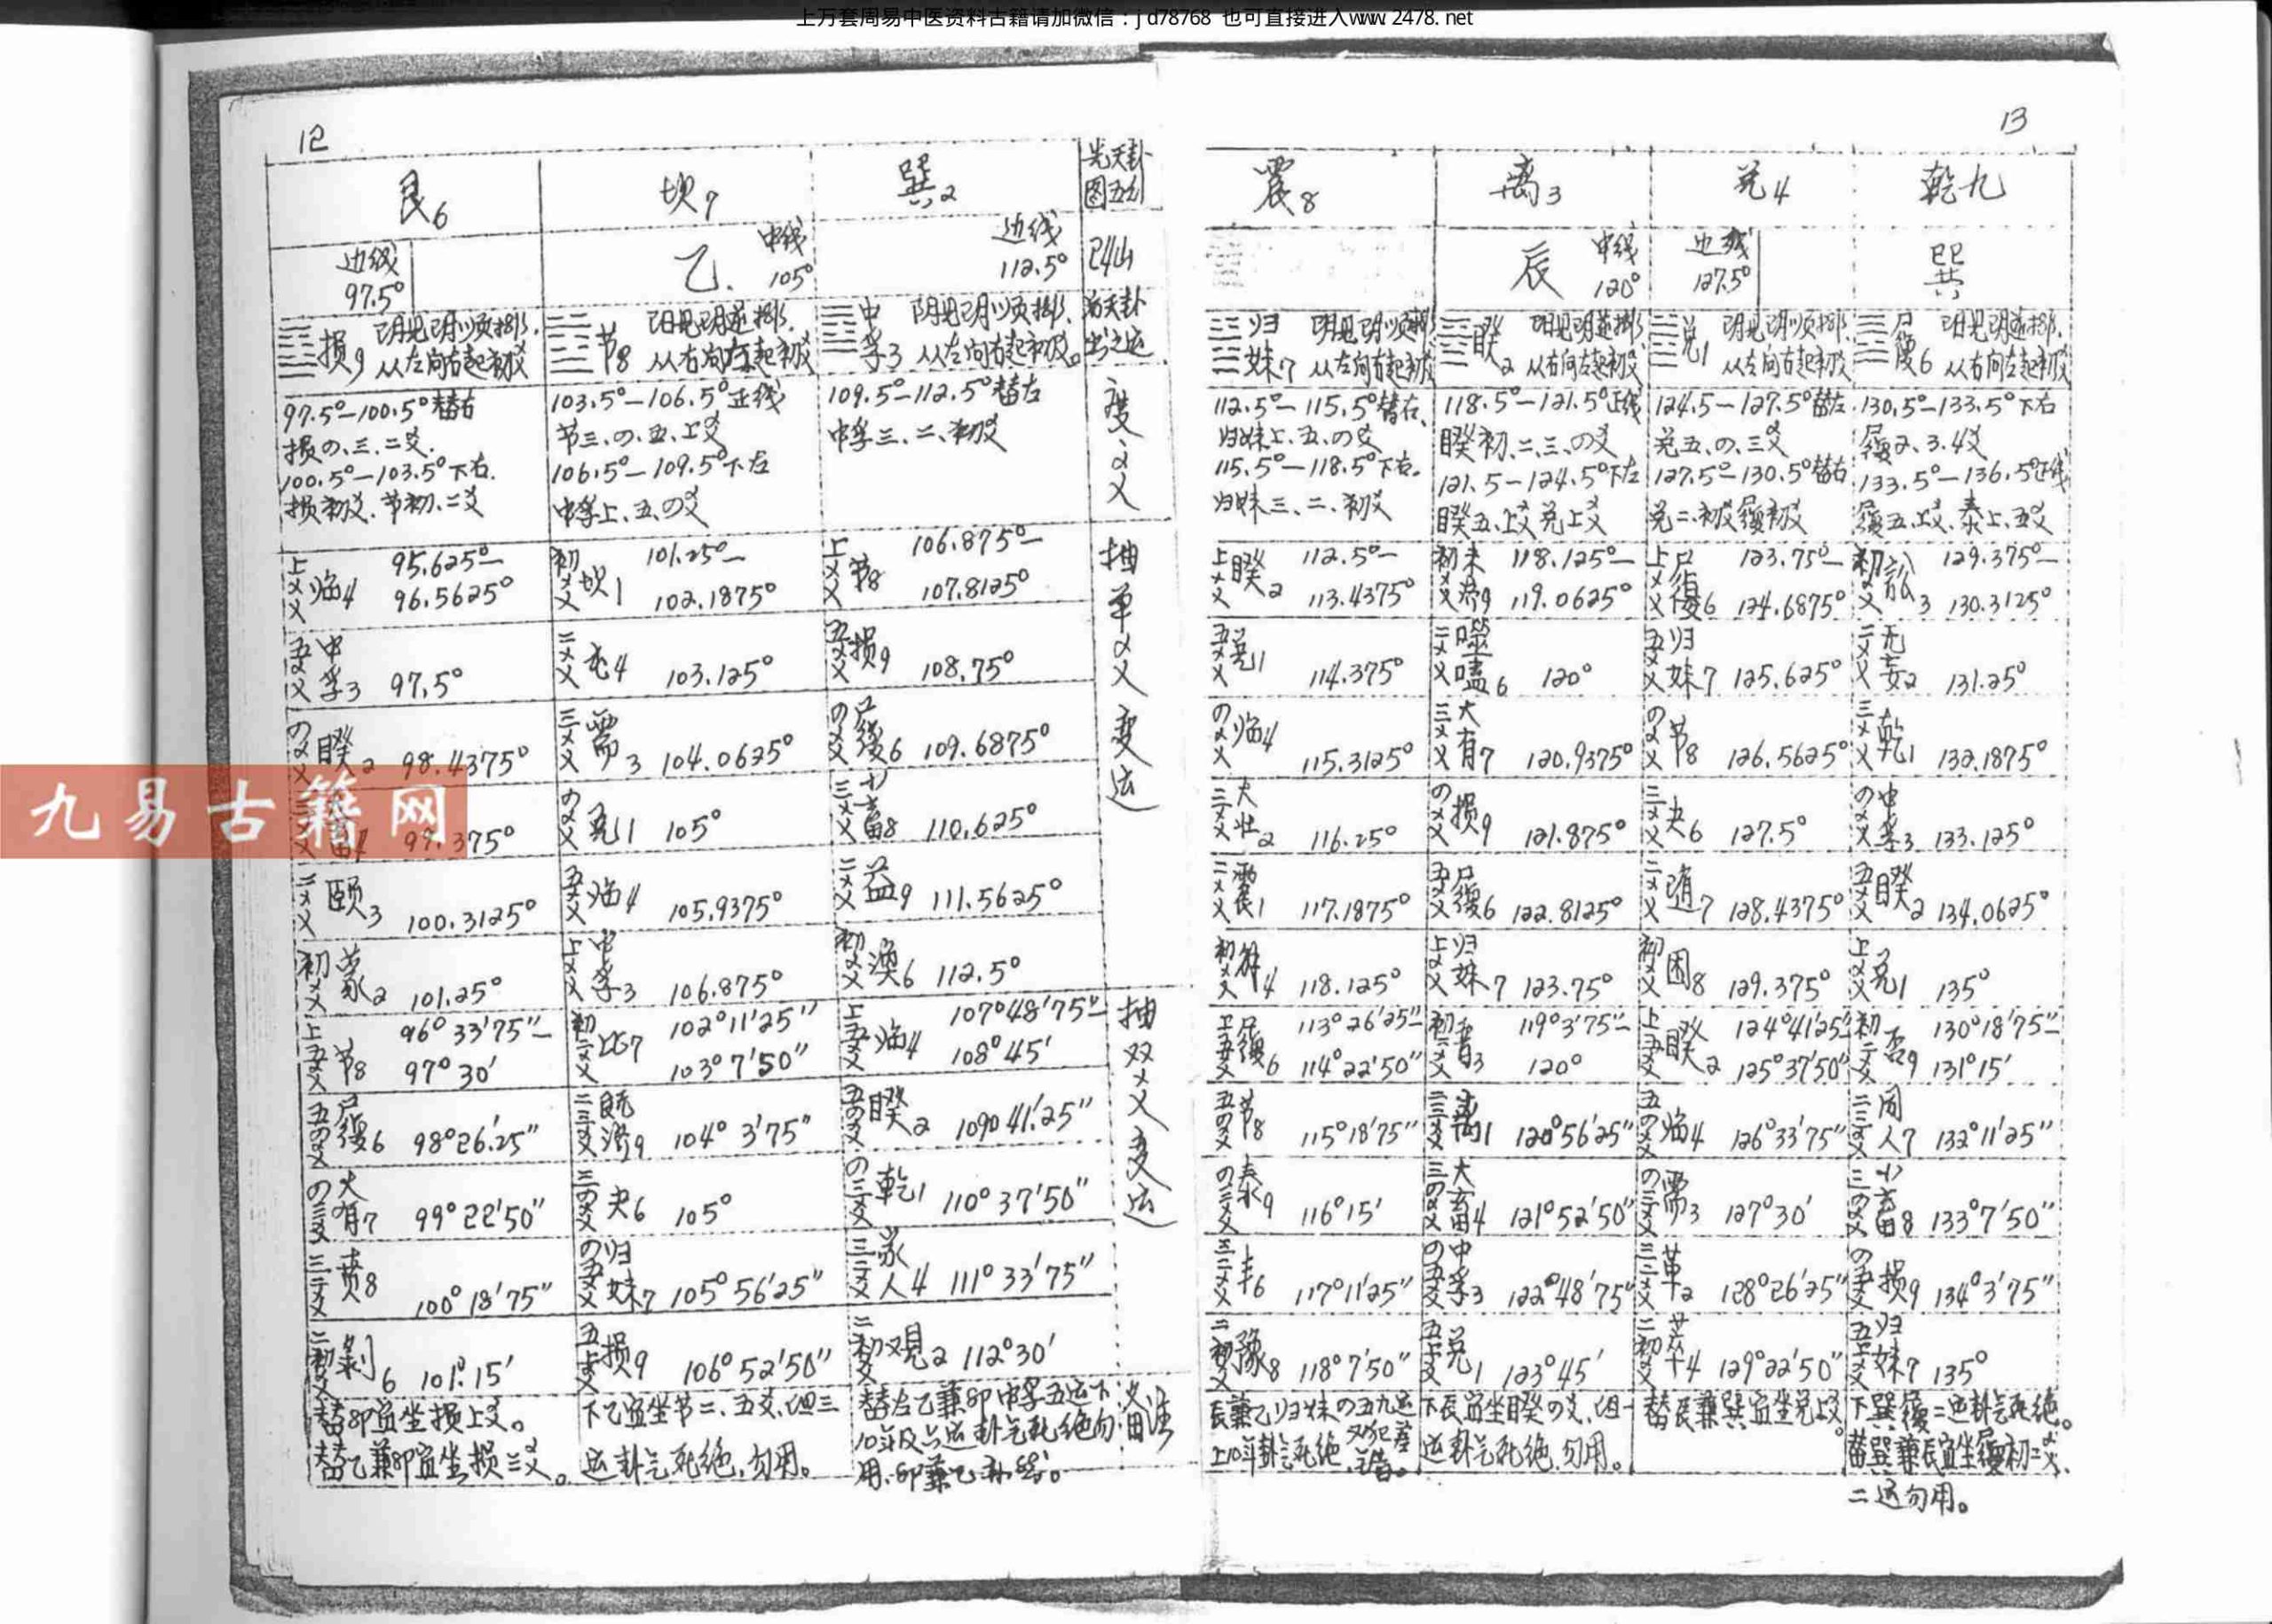 上万套周易中医资料古籍请加微信：jd78768 也可直接进入www.2478.net
12
艮6 坎7 巽2 先天卦
图五行
边线
97.5°
乙. 中线
105°
边线
112.5°
24山
损9 阴见阴顺排.
从左向右起初爻
节8 阳见阴逆排.
从右向左起初爻
中孚3 阴见阴顺排.
从左向右起初爻。
97.5°—100.5°替右
损の、三、二爻.
100.5°—103.5°下右.
损初爻、节初、二爻
103.5°—106.5°正线
节三、の、五、上爻
106.5°—109.5°下左
中孚上、五、の爻
109.5°—112.5°替左
中孚三、二、初爻
度、爻
抽单爻变运
上爻 临4 95.625°—
96.5625°
初爻 坎1 101.25°—
102.1875°
上爻 节8 106.875°—
107.8125°
五爻 中孚3 97.5°
二爻 屯4 103.125°
五爻 损9 108.75°
の爻 睽2 98.4375°
三爻 需3 104.0625°
の爻 履6 109.6875°
三爻 大畜4 99.375°
の爻 兑1 105°
三爻 小畜8 110.625°
二爻 颐3 100.3125°
五爻 临4 105.9375°
二爻 益9 111.5625°
初爻 蒙2 101.25°
上爻 中孚3 106.875°
初爻 涣6 112.5°
抽双爻变运
上五爻 节8 96°33′75″—
97°30′
初二爻 比7 102°11′25″
103°7′50″
上五爻 临4 107°48′75″—
108°45′
五の爻 履6 98°26′25″
二三爻 既济9 104°3′75″
五の爻 睽2 109°41′25″
の三爻 大有7 99°22′50″
三の爻 夬6 105°
の三爻 乾1 110°37′50″
三二爻 贲8 100°18′75″
の五爻 归妹7 105°56′25″
三二爻 家人4 111°33′75″
二初爻 剥6 101°15′
五上爻 损9 106°52′50″
二初爻 观2 112°30′
替卯宜坐损上爻。
替乙兼卯宜坐损三爻。
下乙宜坐节二、五爻、但三
运卦气死绝，勿用。
替左乙兼卯中孚五运下
10年及六运卦气死绝勿
用.卯兼乙
13
震8 离3 兑4 乾九
辰 中线
120°
边线
127.5°
巽
归妹7 阴见阴顺排
从左向右起初爻
睽2 阳见阴逆排
从右向左起初爻
兑1 阴见阴顺排
从左向右起初爻
履6 阳见阴逆排.
从右向左起初爻
112.5°—115.5°替右.
归妹上、五、の爻
115.5°—118.5°下右.
归妹三、二、初爻
118.5°—121.5°正线
睽初、二、三、の爻
121.5—124.5°下左
睽五、上爻兑上爻
124.5—127.5°替左
兑五、の、三爻
127.5°—130.5°替右
兑二、初爻履初爻
130.5°—133.5°下右
履2、3.4爻
133.5°—136.5°正线
履五、上爻、泰上、五爻
上爻 睽2 112.5°—
113.4375°
初爻 未济9 118.125°—
119.0625°
上爻 履6 123.75°—
124.6875°
初爻 讼3 129.375°—
130.3125°
五爻 兑1 114.375°
二爻 噬嗑6 120°
五爻 归妹7 125.625°
二爻 无妄2 131.25°
の爻 临4 115.3125°
三爻 大有7 120.9375°
の爻 节8 126.5625°
三爻 乾1 132.1875°
三爻 大壮2 116.25°
の爻 损9 121.875°
三爻 夬6 127.5°
の爻 中孚3 133.125°
二爻 震1 117.1875°
五爻 履6 122.8125°
二爻 随7 128.4375°
五爻 睽2 134.0625°
初爻 解4 118.125°
上爻 归妹7 123.75°
初爻 困8 129.375°
上爻 兑1 135°
上五爻 履6 113°26′25″—
114°22′50″
初二爻 晋3 119°3′75″—
120°
上五爻 睽2 124°41′25″
125°37′50″
初二爻 否9 130°18′75″—
131°15′
五の爻 节8 115°18′75″
二三爻 离1 120°56′25″
五の爻 临4 126°33′75″
二三爻 同人7 132°11′25″
の三爻 泰9 116°15′
三の爻 大畜4 121°52′50″
の三爻 需3 127°30′
三の爻 小畜8 133°7′50″
三二爻 丰6 117°11′25″
の五爻 中孚3 122°48′75″
三二爻 革2 128°26′25″
の五爻 损9 134°3′75″
二初爻 豫8 118°7′50″
五上爻 兑1 123°45′
二初爻 萃4 129°22′50″
五上爻 归妹7 135°
辰兼乙归妹の五九运
上10年卦气死绝
下辰宜坐睽の爻，但一
运卦气死绝，勿用。
替辰兼巽宜坐兑上爻。
下巽履二运卦气死绝。
替巽兼辰宜坐履初二爻、
二运勿用。
九易古籍网